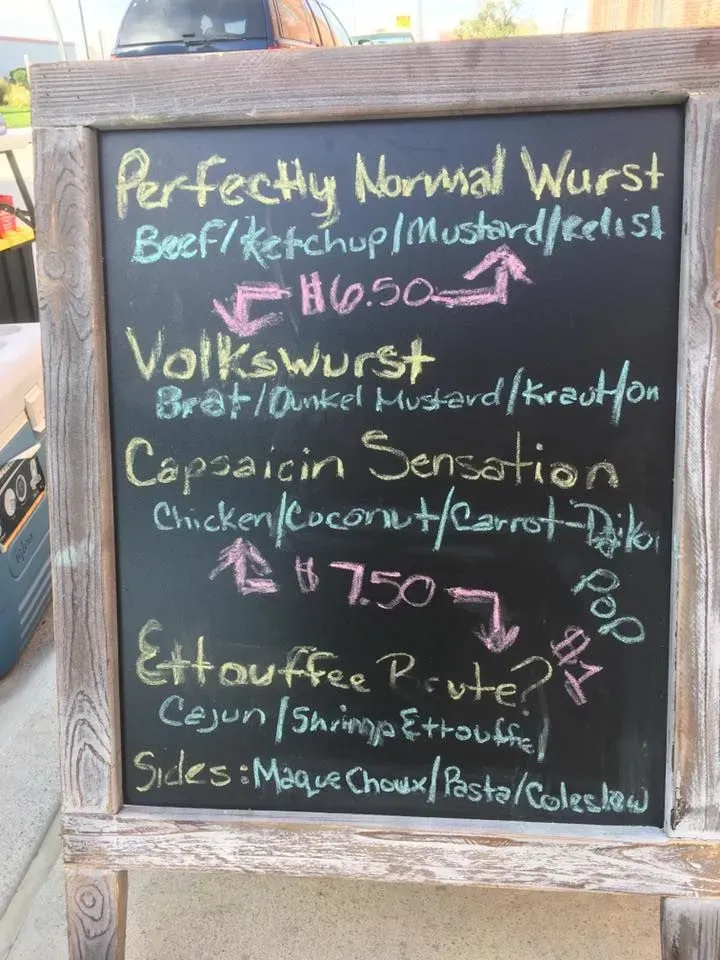 Perfectly Normal Wurst
Beef/Ketchup/Mustard/Relish
$6.50
Volkswurst
Brat/Dunkel Mustard/Kraut/on
Capsaicin Sensation
Chicken/Coconut/Carrot-Daikon
$7.50
Pop
$1
Ettouffee Route?
Cajun/Shrimp Ettouffee/
Sides: Maque Choux/Pasta/Coleslaw